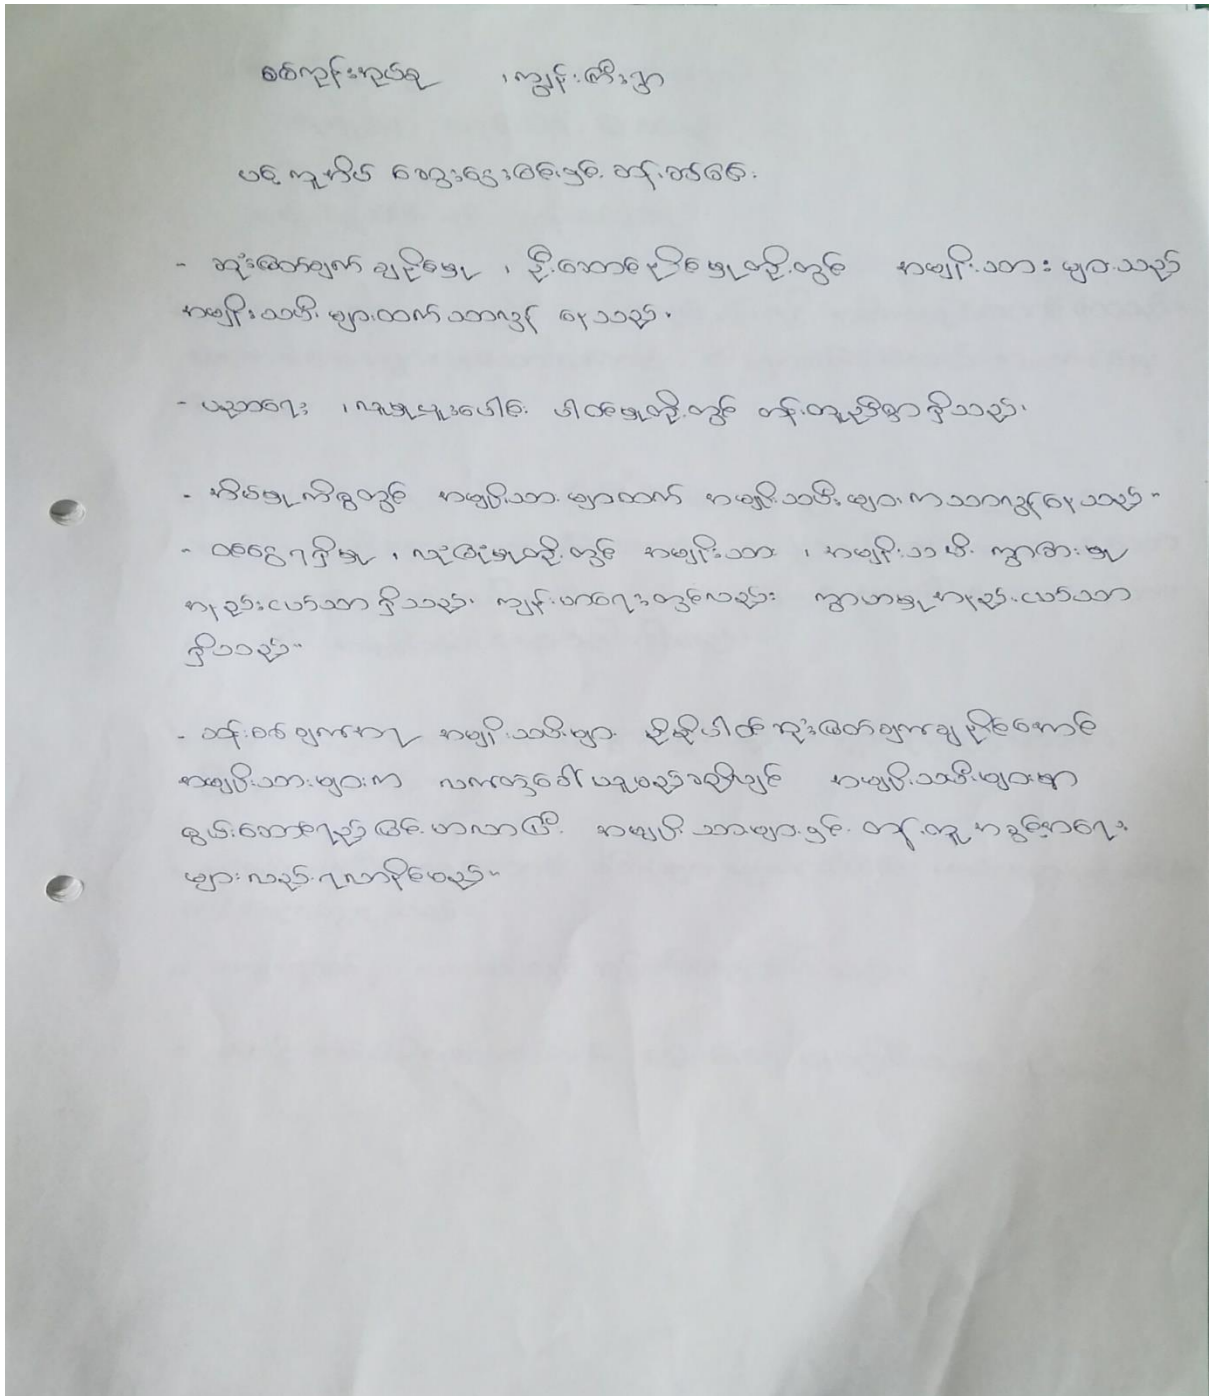 စစ်ကုန်းအုပ်စု ၊ ကျွန်းကြီးရွာ
ပင့်ကူအိမ် ဆွေးနွေးခြင်းနှင့် ဆန်းစစ်ခြင်း
- ဆုံးဖြတ်ချက် ချနိုင်မှု ၊ ဦးဆောင်နိုင်မှုတို့တွင် အမျိုးသားများသည်
အမျိုးသမီးများထက် သာလွန်နေသည်။
- ပညာရေး ၊ လူမှုပူးပေါင်းပါဝင်မှုတို့တွင် တန်းတူညီစွာရှိသည်။
- အိမ်မှုကိစ္စတွင် အမျိုးသားများထက် အမျိုးသမီးများကသာလွန်နေသည်။
- ဝင်ငွေရရှိမှု ၊ လုံခြုံမှုတို့တွင် အမျိုးသား ၊ အမျိုးသမီး ကွာခြားမှု
အနည်းငယ်သာရှိသည်။ ကျန်းမာရေးတွင်လည်း ကွာဟမှုအနည်းငယ်သာ
ရှိသည်။
- သန်းစစ်ချက်အရ အမျိုးသမီးများ ပိုမိုပါဝင်ဆုံးဖြတ်ချက်ချနိုင်အောင်
အမျိုးသားများက လက်တွဲခေါ်ယူမည်ဆိုလျှင် အမျိုးသမီးများမှာ
စွမ်းဆောင်ရည်မြင့်မာလာပြီး အမျိုးသားများနှင့် တန်းတူအခွင့်အရေး
များလည်းရလာနိုင်မည်။